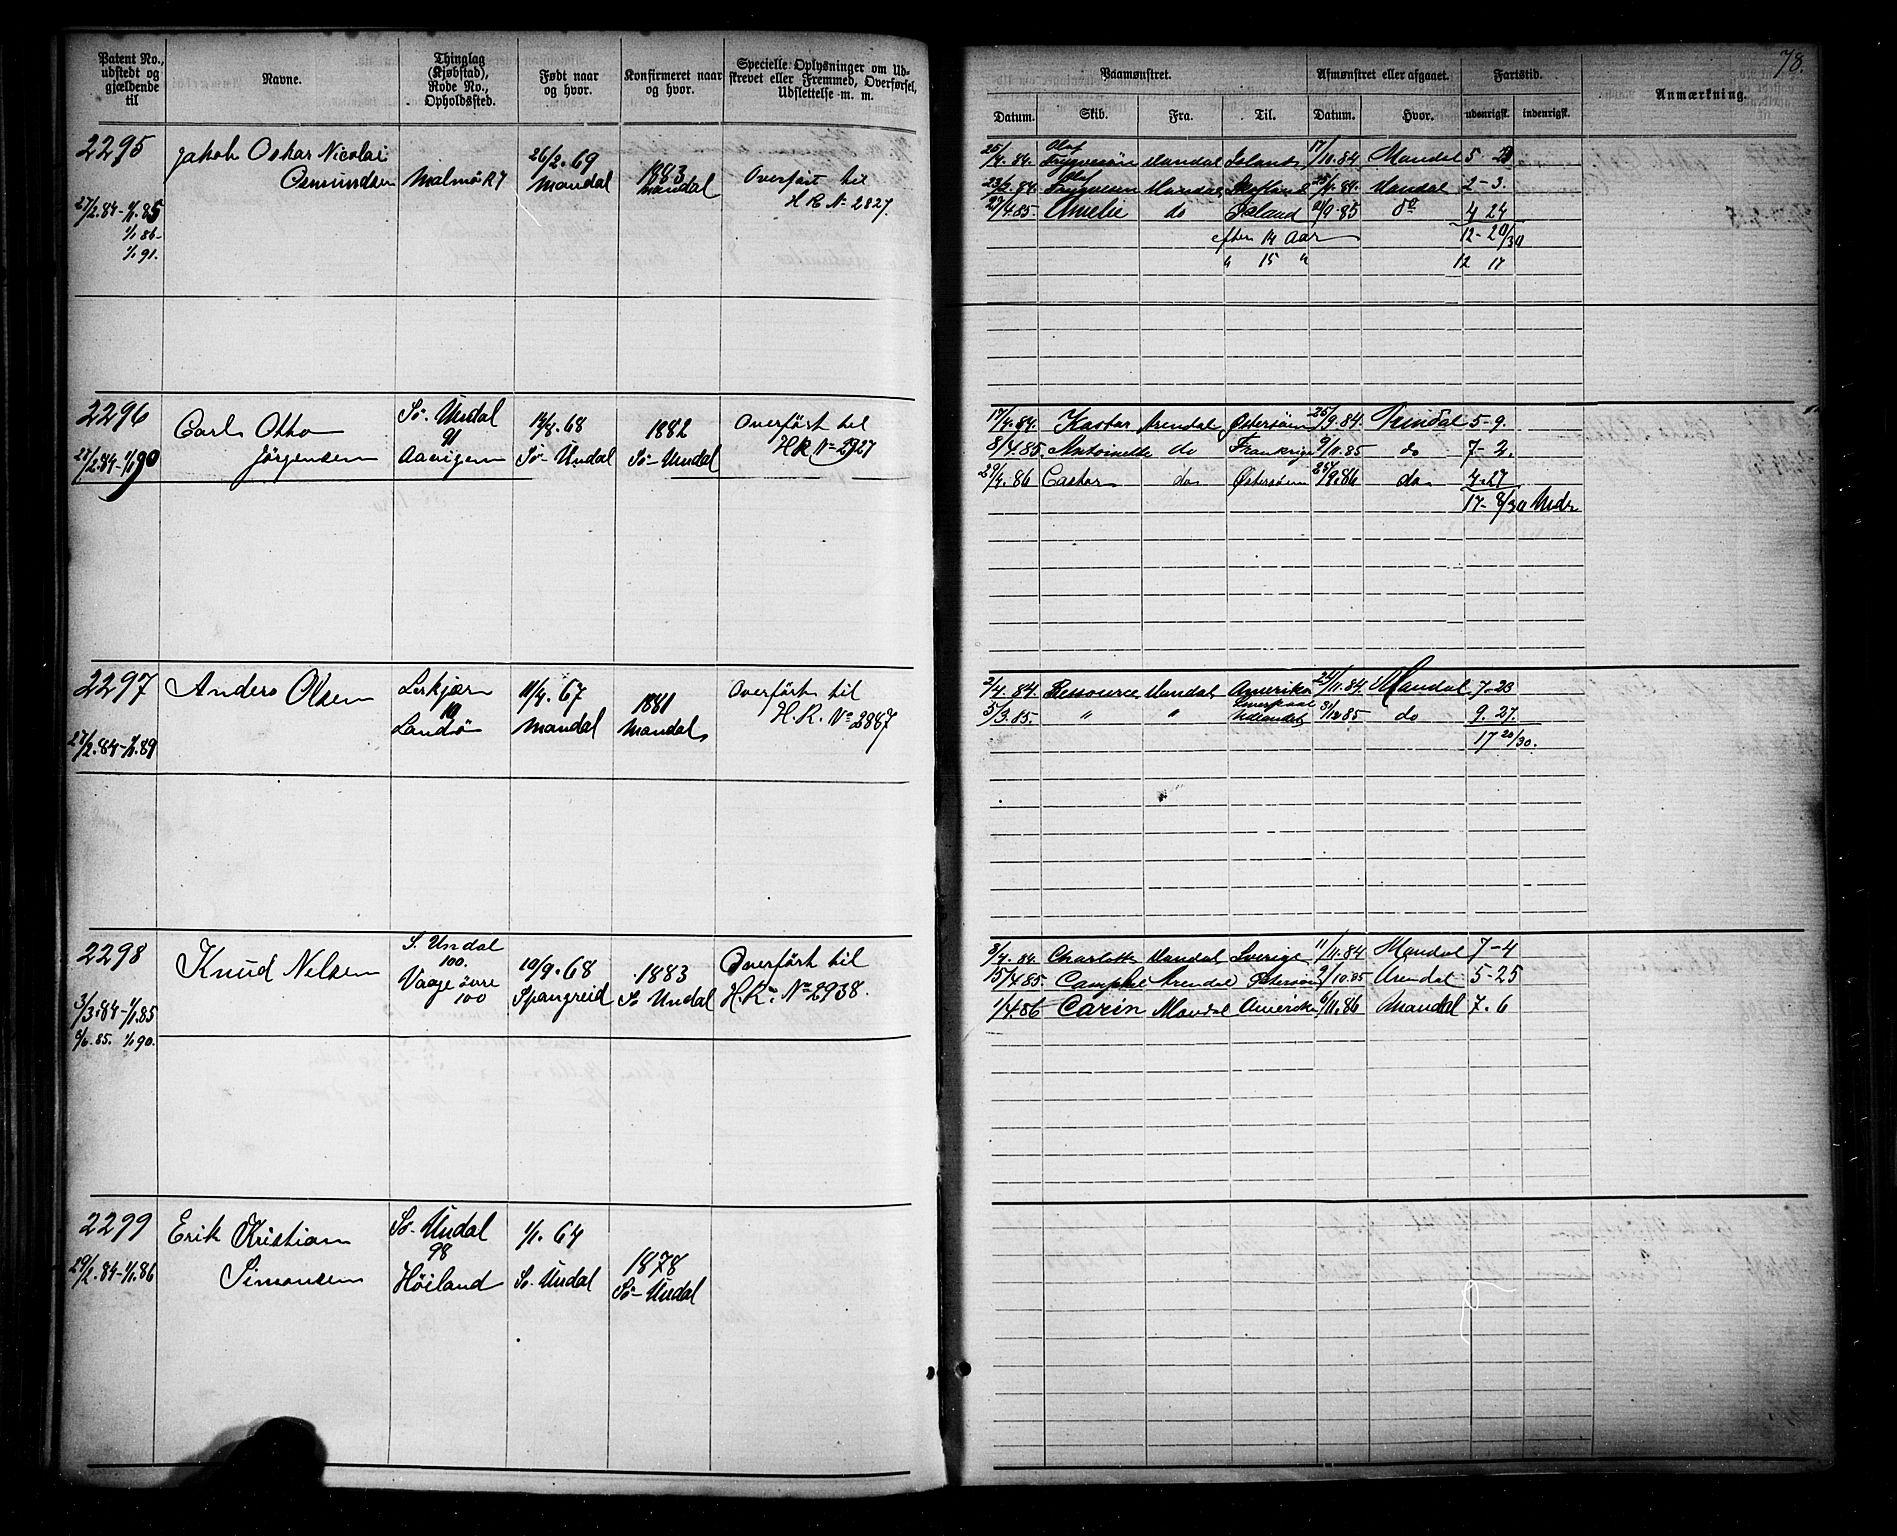 78.
Patent No., udstedt og gjældende til
Navne.
Thinglag (Kjøbstad), Rode No., Opholdssted.
Født naar og hvor.
Konfirmeret naar og hvor.
Specielle Oplysninger om Udskrevet eller Fremmed, Overførsel, Udslettelse m. m.
Paamønstret.
Afmønstret eller afgaaet.
Fartstid.
Anmærkning.
Datum. Skib. Fra. Til. Datum. Hvor. udenrigsk. indenrigsk.
2295
27/2.84-1/1.85
1/1 86-
1/1 91.
Jakob Oskar Nicolai
Osmundsen
Malmö R7
26/2.69
Mandal
1883
Mandal
Overfört til
H R No 2827.
Olaf
Trygvesön Mandal Island 17/10.84 Mandal 5
Olaf
Trygvesön Mandal Mandal 2-3.
29/4.85. Amelie do Island 9.85 do 4 24
efter 14 Aar 12-20/30
" 15 " 12 17
2296
28/2.84-1/1 90
Carl Otto
Jörgensen
Sö. Undal
91
Aavigen
68
Sö-Undal
1882
Sö-Undal
Overfört til
H R No 2927
17/4.84. Kastor Arendal Östersöen 25/9.84. Arendal 5-9.
8/4.85. Antoinette do Frankrige 9/11.85 do 7-2.
29/4.86 Castor do Östersöen 25/9.86 do 4-27
17-8/30 Mdr
2297
27/2.84-1/1.89
Anders Olsen
Lerkjær
19
Landö
11/4.67
Mandal
1881
Mandal
Overfört til
H. R. No 2887
2/4.84. Ressource Mandal Amerika 24/11.84. Mandal 7-23
5/3.85. " " Liverpool
Udlandet 31/12.85 do 9.27.
17 20/30.
2298
3/3.84-1/1.85
6/6.85. 1/1 90.
Knud Nilsen
S. Undal
100.
Vaage övre
100
10/9.68
Spangreid
1883
Sö Undal
Overfört til
H.R. No 2938.
3/4.84. Charlotte Mandal Sverige 11/11.84 Mandal 7-4
15/4.85. Arendal Östersöen 9/10.85 Arendal 5-25
1/4.86 Carin Mandal Amerika 6/11.86 Mandal 7.6
2299
29/2.84-1/1.86
Erik Kristian
Simonsen
Sö-Undal
98
Höiland
1/1.64
Sö. Undal
1878
Sö-Undal